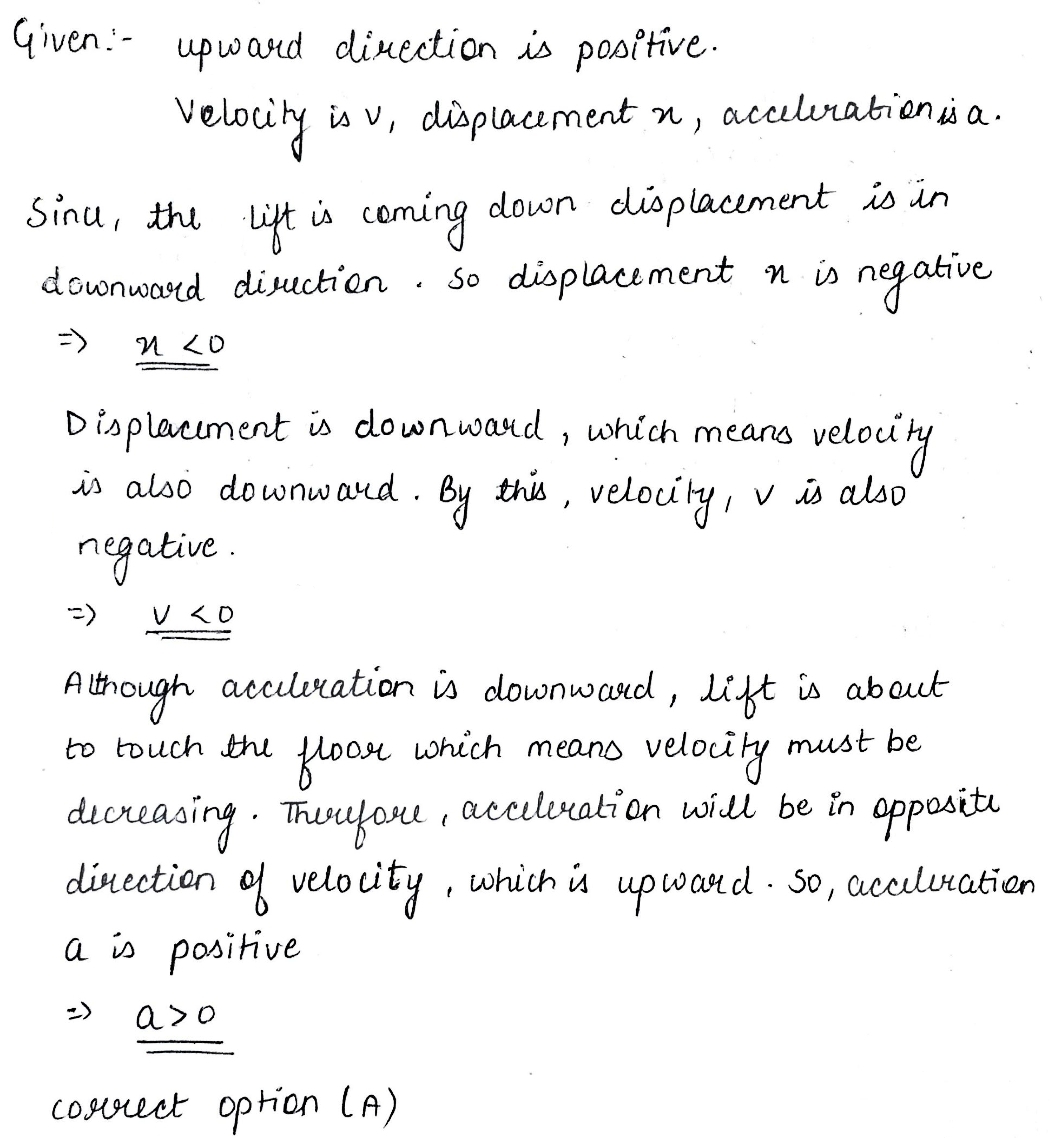 Given:- upward direction is positive.
Velocity is v, displacement x, acceleration is a.
Since, the lift is coming down displacement is in
downward direction. So displacement x is negative
=> x <0
Displacement is downward, which means velocity
is also downward. By this, velocity, v is also
negative.
=> v <0
Although acceleration is downward, lift is about
to touch the floor which means velocity must be
decreasing. Therefore, acceleration will be in opposite
direction of velocity, which is upward. So, acceleration
a is positive
=> a>0
correct option (A)